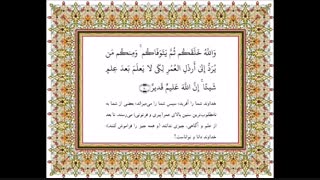 وَاللَّهُ خَلَقَكُمْ ثُمَّ يَتَوَفَّاكُمْ ۚ وَمِنكُم مَّن
يُرَدُّ إِلَىٰ أَرْذَلِ الْعُمُرِ لِكَيْ لَا يَعْلَمَ بَعْدَ عِلْمٍ
شَيْئًا ۚ إِنَّ اللَّهَ عَلِيمٌ قَدِيرٌ ﴿٧٠﴾
خداوند شما را آفرید؛ سپس شما را می‌میراند؛ بعضی از شما به
نامطلوب‌ترین سنین بالای عمر (پیری و فرتوتی) می‌رسند، تا بعد
از علم و آگاهی، چیزی ندانند (و همه چیز را فراموش کنند)؛
خداوند دانا و تواناست!